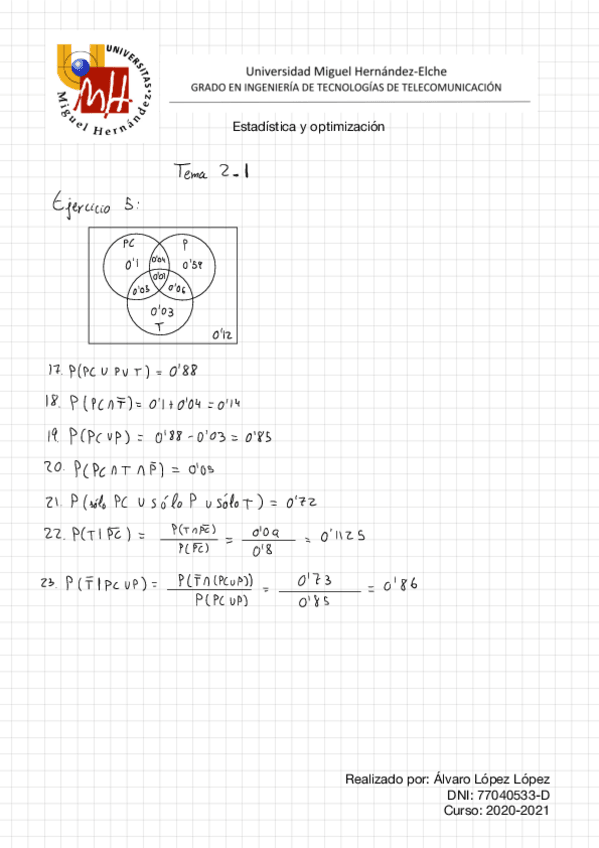 UNIVERSITAS
Miguel Hernández
Universidad Miguel Hernández-Elche
GRADO EN INGENIERÍA DE TECNOLOGÍAS DE TELECOMUNICACIÓN
Estadística y optimización
Tema 2-1
Ejercicio 5:
PC P
0'1 0'04 0'59
0'01
0'05 0'06
0'03
T
0'12
17. P(PC ∪ P ∪ T) = 0'88
18. P(PC ∩ T̅) = 0'1 + 0'04 = 0'14
19. P(PC ∪ P) = 0'88 - 0'03 = 0'85
20. P(PC ∩ T ∩ P̅) = 0'05
21. P(sólo PC ∪ sólo P ∪ sólo T) = 0'72
22. P(T | P̅C̅) = P(T ∩ P̅C̅) / P(P̅C̅) = 0'09 / 0'8 = 0'1125
23. P(T̅ | PC ∪ P) = P(T̅ ∩ (PC ∪ P)) / P(PC ∪ P) = 0'73 / 0'85 = 0'86
Realizado por: Álvaro López López
DNI: 77040533-D
Curso: 2020-2021